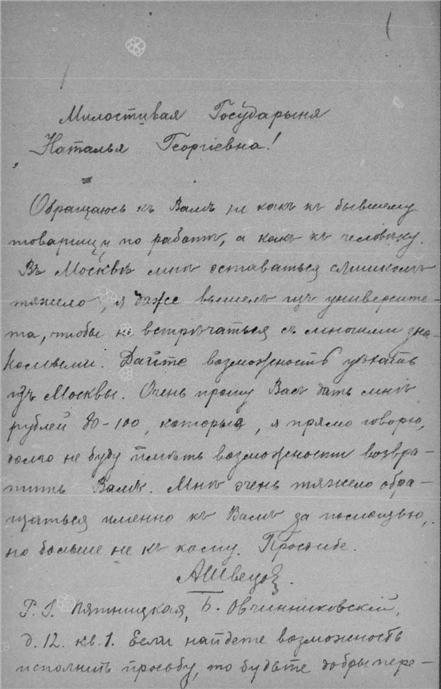 Милостивая Государыня
Наталья Георгіевна!
Обращаюсь къ Вамъ не какъ къ бывшему
товарищу по работѣ, а какъ къ человѣку.
Въ Москвѣ мнѣ оставаться слишкомъ
тяжело, я даже вышелъ изъ университе-
та, чтобы не встрѣчаться съ многими зна-
комыми. Дайте возможность уѣхать
изъ Москвы. Очень прошу Васъ дать мнѣ
рублей 80-100, которые, я прямо говорю,
долго не буду имѣть возможности возвра-
тить Вамъ. Мнѣ очень тяжело обра-
щаться именно къ Вамъ за помощью,
но больше не къ кому. Простите.
АШвецов.
P. S. Пятницкая, Б. Овчинниковскій,
д. 12. кв. 1. Если найдете возможность
исполнить просьбу, то будьте добры пере-